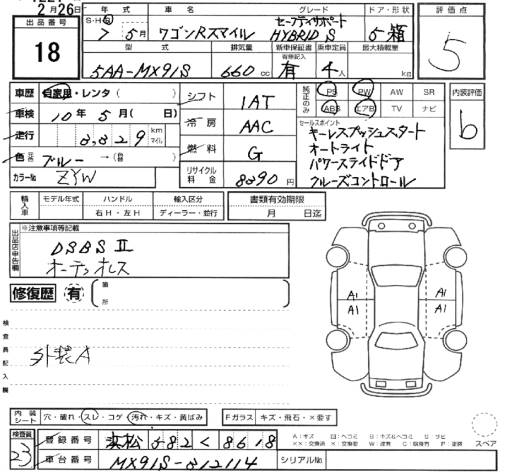 2月26日
出品番号
18
年式 車名 グレード ドア・形状
S・H・R
7 5月 ワゴンRスマイル セーフティサポート HYBRID S 5 箱
型式 排気量 新車保証書 乗車定員 最大積載量
有無記入
5AA-MX91S 660cc 有 4人 kg
評価点
5
車歴 自家用・レンタ( )
車検 10年5月( 日)
走行 8,829 km マイル
色 ブルー → (
カラーNo. ZYW
シフト 1AT
冷房 AAC
燃料 G
リサイクル料金 8890円
純正のみ PS PW AW SR
ABS エアB TV ナビ
セールスポイント
キーレスプッシュスタート
オートライト
パワースライドドア
クルーズコントロール
内装評価
b
輸入車 モデル年式 ハンドル 輸入区分
右H・左H ディーラー・並行
書類有効期限
月 日迄
※注意事項等記載
DSBS II
オーディオレス
修復歴 有 箇所
検査員記入欄
外装A
A1 A1
A1 A1
内装シート 穴・破れ・スレ・コゲ・汚れ・キズ・黄ばみ
Fガラス キズ・飛石・×要す
スペア
検査員
23
登録番号 浜松 582 く 8618
車台番号 MX91S-212114
シリアルNo.